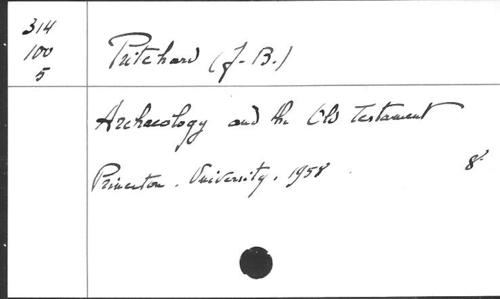 314
100
5
Pritchard (J-B.)
Archaeology and the Old Testament
Princeton. University. 1958 8°